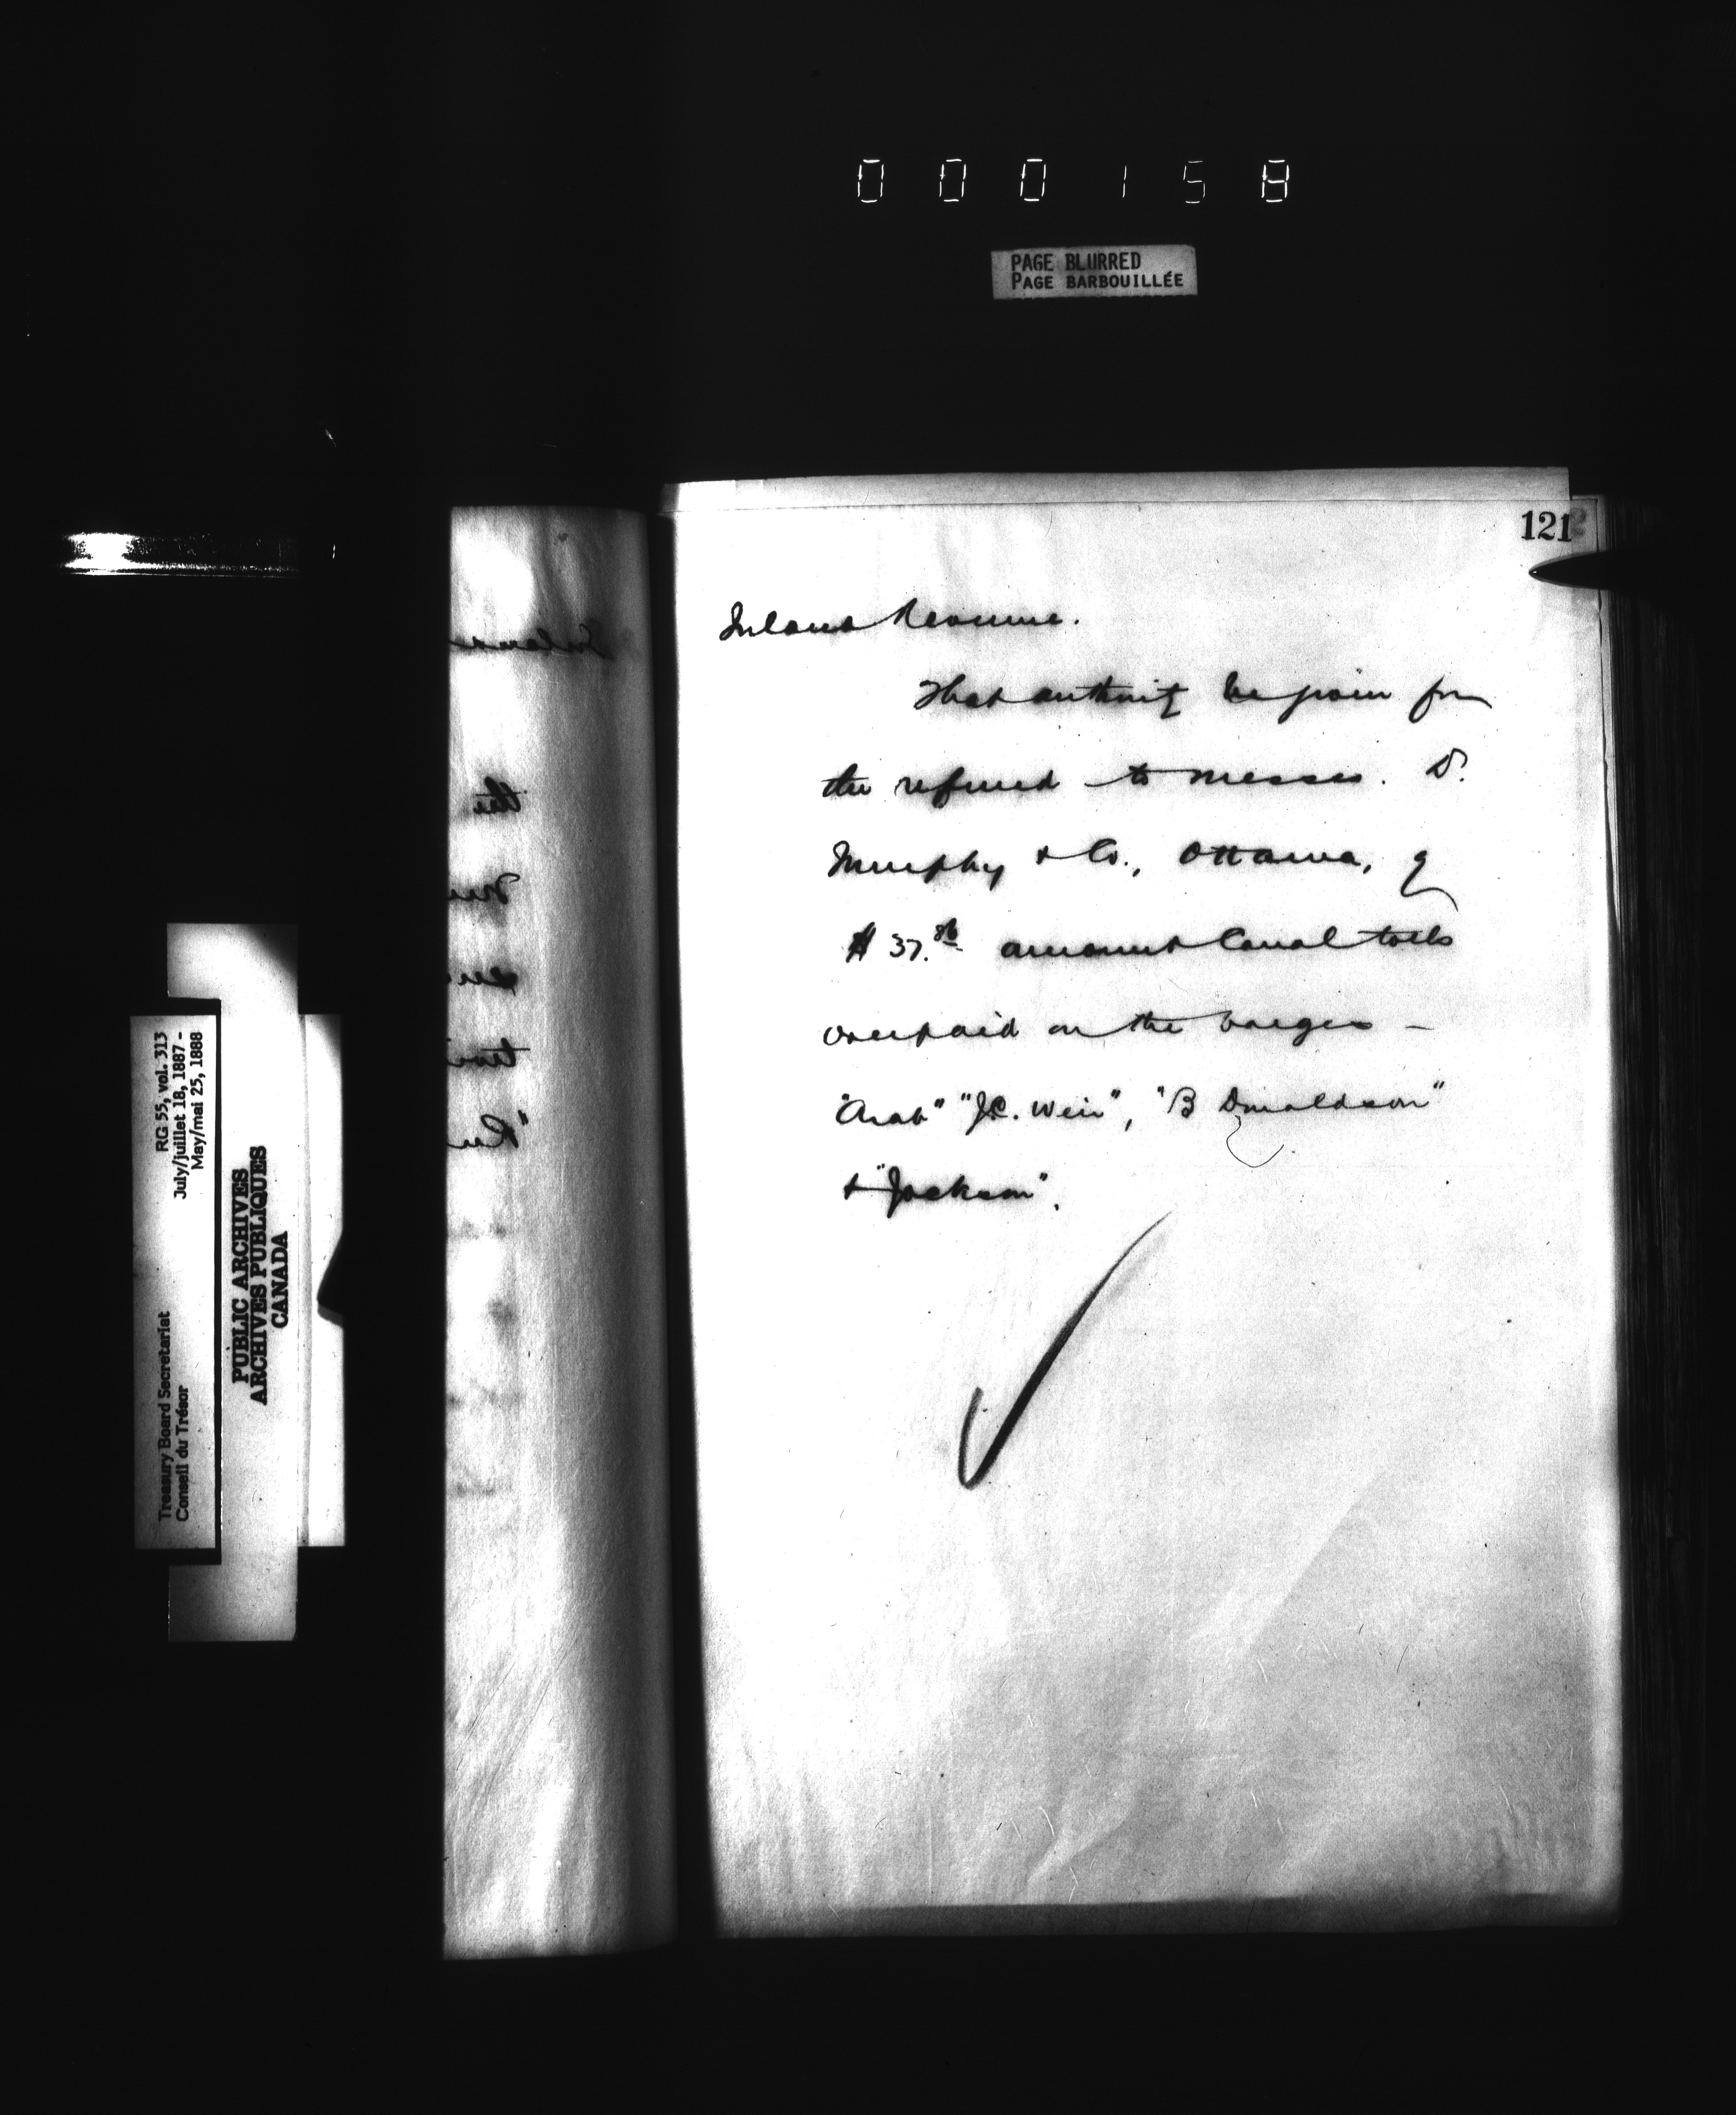 000158
PAGE BLURRED
PAGE BARBOUILLÉE
121
Inland Revenue.
That authority be given for
the refund to Messrs. D.
Murphy & Co., Ottawa, of
$37.86 amount Canal tolls
overpaid on the barges –
"Arab" "J.C. Weir", "B Donaldson"
& "Jackson".
RG 55, vol. 313
July/juillet 18, 1887 -
May/mai 25, 1888
Treasury Board Secretariat
Conseil du Trésor
PUBLIC ARCHIVES
ARCHIVES PUBLIQUES
CANADA